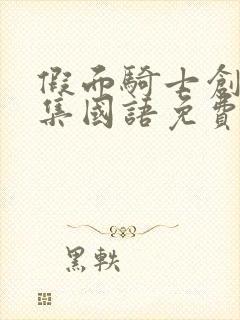 假面騎士創
集國語免費
黑軼